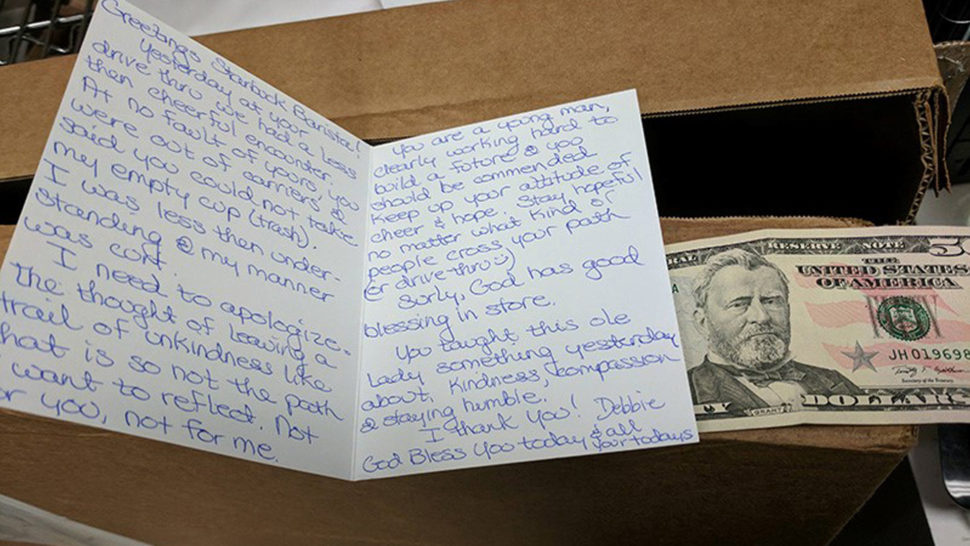 Greetings Starbuck Barista!
Yesterday at your
drive thru we had a less
then cheerful encounter.
At no fault of yours you
were out of carriers &
said you could not take
my empty cup (trash).
I was less then under-
standing & my manner
was curt.
I need to apologize-
the thought of leaving a
trail of unkindness like
that is so not the path
I want to reflect. Not
for you, not for me.
You are a young man,
clearly working hard to
build a future & you
should be commended
Keep up your attitude of
cheer & hope. Stay hopeful
no matter what kind of
people cross your path
(er drive thru :)
Surly, God has good
blessing in store.
You taught this ole
Lady something yesterday
about, kindness, compassion
& staying humble.
I thank you! Debbie
God Bless you today & all
your todays
RAL RESERVE NOTE 50
THE
UNITED STATES
OF AMERICA
JH 019698
Secretary of the Treasury
GRANT
TY DOLLARS